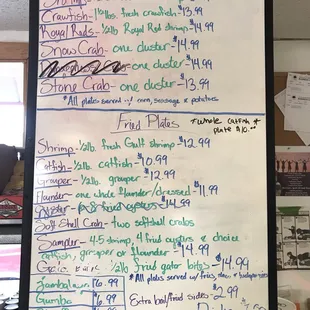 Crawfish - 1½ lbs. fresh crawfish $13.99
Royal Reds - ½ lb Royal Red shrimp $14.99
Snow Crab - one cluster - $14.99
one cluster - $14.99
Stone Crab - one cluster - $13.99
*All plates served w/ corn, sausage & potatoes
Fried Plates
*whole catfish
plate $10.
Shrimp - ½ lb. fresh Gulf shrimp - $12.99
Catfish - ½ lb. catfish $10.99
Grouper - ½ lb. grouper $12.99
Flounder - one whole flounder/dressed $11.99
Oyster - 8 fried oysters $14.99
Soft Shell Crab - two softshell crabs
Sampler - 4-5 shrimp, 4 fried oysters & choice
catfish, grouper or flounder $14.99
½ lb fried gator bites $14.99
*All plates served w/ fries, slaw, &
Jambalaya $6.99
Gumbo $6.99
Extra bad/fried sides $2.99